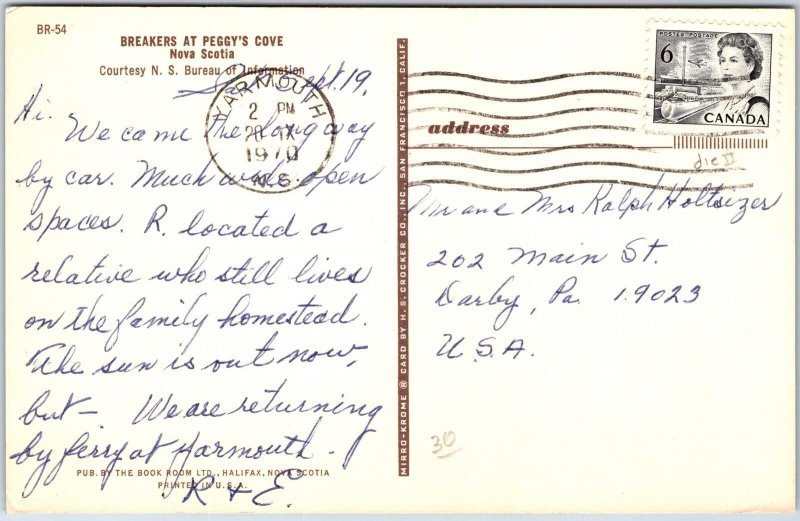 BR-54
BREAKERS AT PEGGY'S COVE
Nova Scotia
Courtesy N. S. Bureau of Information
Sept. 19.
Hi.
We came the long way
by car. Much wide open
spaces. R. located a
relative who still lives
on the family homestead.
The sun is out now,
but — We are returning
by ferry at Yarmouth.
R + E.
PUB. BY THE BOOK ROOM LTD., HALIFAX, NOVA SCOTIA
PRINTED IN U.S.A.
YARMOUTH
2 PM
20 IX
1970
N.S.
MIRRO-KROME ® CARD BY H. S. CROCKER CO., INC., SAN FRANCISCO 1, CALIF.
POSTES POSTAGE
6
CANADA
die II
address
Mr and Mrs Ralph Holtsizer
202 Main St.
Darby, Pa. 19023
U.S.A.
30